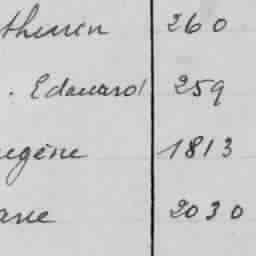 thurin 260
. Edouard 259
eugène 1813
arie 2030